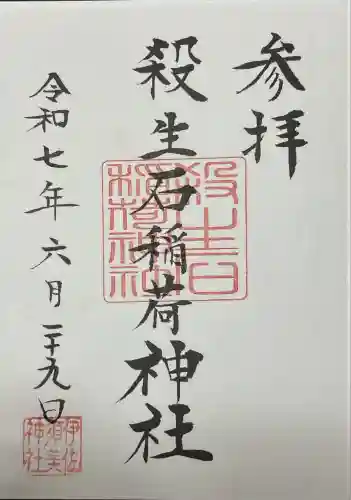 参拝
殺生石稲荷神社
令和七年六月二十九日
殺生石稲荷神社
伊佐須美神社